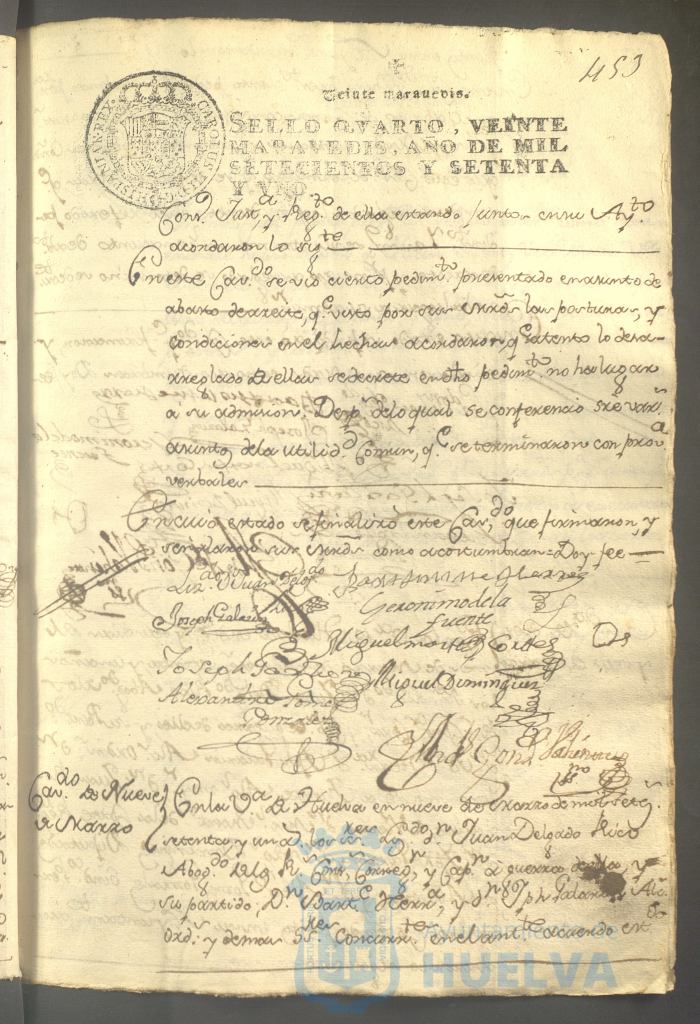 453
Veinte maravedis.
SELLO QVARTO, VEINTE
MARAVEDIS, AÑO DE MIL
SETECIENTOS Y SETENTA
Y VNO
CAROLUS III D G HISPANIAR REX
Cons.ª Just.ª y Reg.to de ella estando juntos en su Ay.to
acordaron lo sig.te
En este Cav.do se vio cierto pedim.to presentado en asunto de
abasto de azeite, q.e visto por sus mrds las posturas, y
condiciones en el hechas acordaron, q.e atento lo desa-
rreglado de ellas se decrete en dho pedim.to no ha lugar
a su admision. Desp.s de lo qual se conferencio sre var.s
asuntos de la utilid.d Comun, q.e se terminaron con prov.a
verbales
En cuio estado se finalizo este Cav.do que firmaron, y
señalaron sus mrds como acostumbran = Doy fee
Liz.do D Juan Delg.do
Barttolome Herrera
Joseph Galarza
Geronimo de la
fuente
Miguel Cortes
Joseph
Miguel Dominguez
Alexandro
Gonzalez
Cav.do de Nueve
de Marzo
En la V.a de Huelva en nueve de Marzo de mil sete.s
setenta y un a.s los s.res Liz.do d.n Juan Delgado Rico
Abog.do de los R.s Cons.s, Correg.r y Cap.n a guerra de ella, y
su partido, D.n Bart.e Herr.a, y d.n Jph Galarza Alc.s
ord.s y demas S.res Concurr.tes en el ant.te acuerdo est.do
Ayuntamiento de
HUELVA